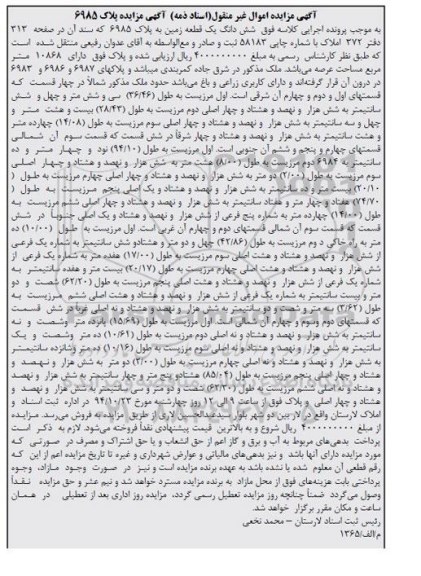 آگهی مزایده اموال غیر منقول(اسناد ذمه) آگهی مزایده پلاک ۶۹۸۵
به موجب پرونده اجرایی کلاسه فوق شش دانگ یک قطعه زمین به پلاک ۶۹۸۵ که سند آن در صفحه ۳۱۳
دفتر ۳۷۲ املاک با شماره چاپی ۵۸۱۸۳ ثبت و صادر و مع‌الواسطه به آقای عدوان رفیعی منتقل شده است
که طبق نظر کارشناس رسمی به مبلغ ۴۰۰۰۰۰۰۰۰۰ ریال ارزیابی شده و پلاک فوق دارای ۱۰۸۶۸ متر
مربع مساحت عرصه می‌باشد. ملک مذکور در شرق جاده کمربندی میباشد و پلاکهای ۶۹۸۷ و ۶۹۸۶ و ۶۹۸۳
در درون آن قرار گرفته‌اند و دارای کاربری زراعی و باغ می‌باشد حدود ملک مذکور شمالاً در چهار قسمت که
قسمتهای اول و دوم و چهارم آن شرقی است. اول مرزیست به طول (۳۶/۴۶) سی و شش متر و چهل و شش
سانتیمتر به شش هزار و نهصد و هشتاد و چهار اصلی دوم مرزیست به طول (۲۸/۴۳) بیست و هشت متر و
چهل و سه سانتیمتر به شش هزار و نهصد و هشتاد و چهار اصلی سوم مرزیست به طول (۱۴/۰۸) چهارده متر
و هشت سانتیمتر به شش هزار و نهصد و هشتاد و چهار شرقاً در شش قسمت که قسمت سوم آن شمالی
قسمتهای چهارم و پنجم و ششم آن جنوبی است. اول مرزیست به طول (۹۴/۱۰) نود و چهار متر و ده
سانتیمتر به ۶۹۸۴ دوم مرزیست به طول (۸/۰۰) هشت متر به شش هزار و نهصد و هشتاد و چهار اصلی
سوم مرزیست به طول (۲/۰۰) دو متر به شش هزار و نهصد و هشتاد و چهار اصلی چهارم مرزیست به طول (
۲۰/۱۰) بیست متر و ده سانتیمتر به شش هزار و نهصد و هشتاد و یک اصلی پنجم مرزیست به طول (
۷۴/۷۰) هفتاد و چهار متر و هفتاد سانتیمتر به شش هزار و نهصد و هشتاد و چهار اصلی ششم مرزیست به
طول (۱۴/۰۰) چهارده متر به شماره پنج فرعی از شش هزار و نهصد و هشتاد و یک اصلی جنوباً در شش
قسمت که قسمت سوم آن شمالی قسمتهای دوم و چهارم آن غربی است. اول مرزیست به طول (۱۰/۰۰) ده
متر به راه خاکی دوم مرزیست به طول (۴۲/۸۶) چهل و دو متر و هشتادو شش سانتیمتر به شماره یک فرعی
از شش هزار و نهصد و هشتاد و هشت اصلی سوم مرزیست به طول (۱۷/۰۰) هفده متر به شماره یک فرعی از
شش هزار و نهصد و هشتاد و هشت اصلی چهارم مرزیست به طول (۲۰/۱۷) بیست متر و هفده سانتیمتر به
شماره یک فرعی از شش هزار و نهصد و هشتاد و هشت اصلی پنجم مرزیست به طول (۶۲/۲۰) شصت و دو
متر و بیست سانتیمتر به شماره یک فرعی از شش هزار و نهصد و هشتاد و هشت اصلی ششم مرزیست به
طول (۳/۶۲) سه متر و شصت و دو سانتیمتر به شش هزار و نهصد و هشتاد و نه اصلی غرباً در شش قسمت
که قسمتهای دوم وسوم و چهارم آن شمالی است. اول مرزیست به طول (۱۵/۶۹) پانزده متر و شصت و نه
سانتیمتر به شش هزار و نهصد و هشتاد و نه اصلی دوم مرزیست به طول (۱۰/۶۱) ده متر و شصت و یک
سانتیمتر به شش هزار و نهصد و هشتاد و نه اصلی سوم مرزیست به طول (۱۰/۱۶) ده متر و شانزده سانتیمتر
به شش هزار و نهصد و هشتاد و نه اصلی چهارم مرزیست به طول (۳/۰۰) سه متر به شش هزار و نهصد و
هشتاد و چهار اصلی پنجم مرزیست به طول (۸۵/۰۴) هشتادو پنج متر و چهار سانتیمتر به شش هزار و نهصد
و هشتاد و نه اصلی ششم مرزیست به طول (۶۲/۳۰) شصت و دو متر و سی سانتیمتر به شش هزار و نهصد و
هشتاد و چهار اصلی. و پلاک فوق از ساعت ۹ الی ۱۲ روز چهارشنبه مورخ ۹۴/۱۰/۲۳ در اداره ثبت اسناد و
املاک لارستان واقع در لار بین دو شهر بلوار سیدعبدالحسین لاری از طریق مزایده به فروش می‌رسد. مزایده
از مبلغ ۴۰۰۰۰۰۰۰۰۰ ریال شروع و به بالاترین قیمت پیشنهادی نقداً فروخته می‌شود. لازم به ذکر است
پرداخت بدهی‌های مربوط به آب و برق و گاز اعم از حق انشعاب و یا حق اشتراک و مصرف در صورتی که
مورد مزایده دارای آنها باشد و نیز بدهی‌های مالیاتی و عوارض شهرداری و غیره تا تاریخ مزایده اعم از این که
رقم قطعی آن معلوم شده یا نشده باشد به عهده برنده مزایده است و نیز در صورت وجود مازاد، وجوه
پرداختی بابت هزینه‌های فوق از محل مازاد به برنده مزایده مسترد خواهد شد و نیم عشر و حق مزایده نقداً
وصول می‌گردد ضمناً چنانچه روز مزایده تعطیل رسمی گردد، مزایده روز اداری بعد از تعطیلی در همان
ساعت و مکان مقرر برگزار خواهد شد.
رئیس ثبت اسناد لارستان – محمد نخعی
م/الف/۱۳۶۵